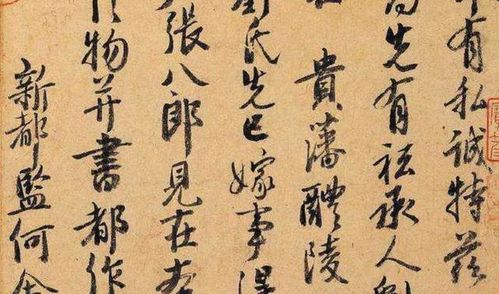 有私誠特茲
先有祗承人
貴藩醴陵
氏先已嫁事
張八郎見在
物并書都作
新都監何